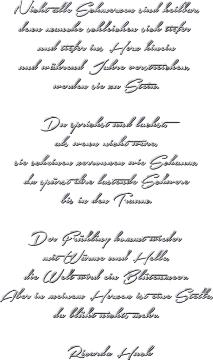 Nicht alle Schmerzen sind heilbar,
denn manche schleichen sich tiefer
und tiefer ins Herz hinein
und während Jahre verstreichen,
werden sie zu Stein.
Du sprichst und lachst,
als wenn nichts wäre,
sie scheinen zerronnen wie Schaum,
du spürst ihre lastende Schwere
bis in den Traum.
Der Frühling kommt wieder
mit Wärme und Helle,
die Welt wird ein Blütenmeer.
Aber in meinem Herzen ist eine Stelle,
da blüht nichts mehr.
Ricarda Huch